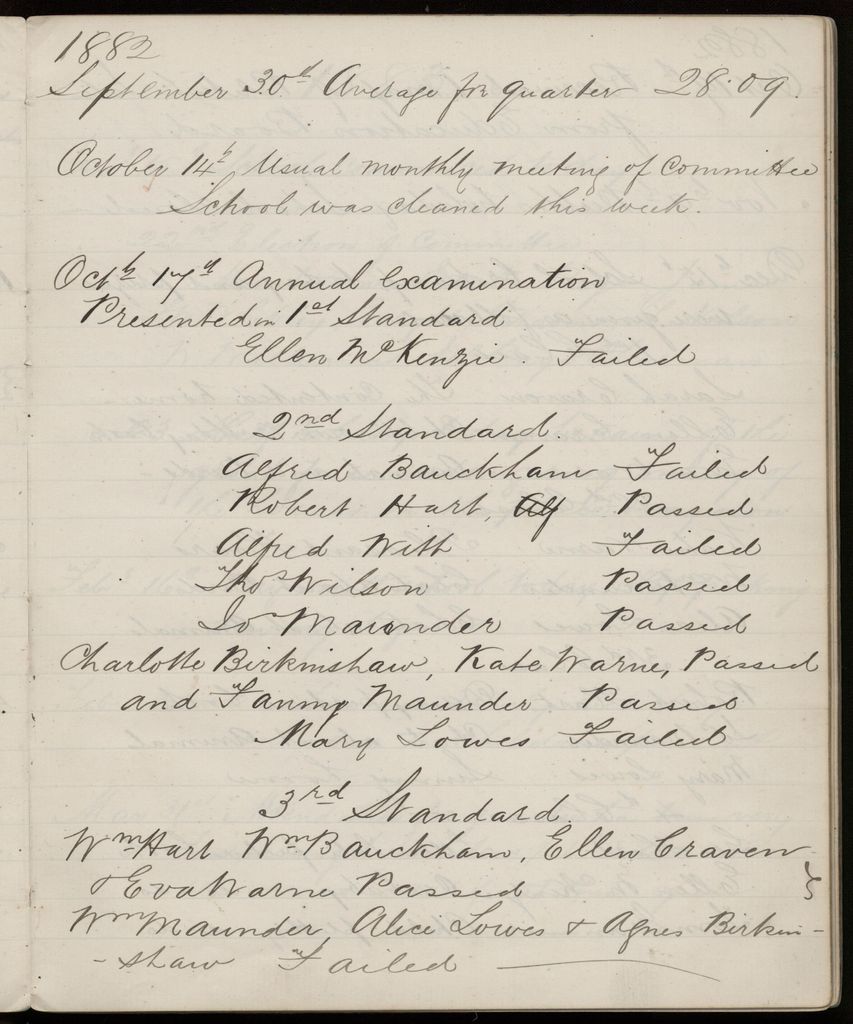 1882
September 30th Average for quarter 28.09.
October 14th Usual monthly meeting of Committee
School was cleaned this week.
Octh 17th Annual examination
Presented in 1st Standard
Ellen McKenzie. Failed
2nd Standard.
Alfred Bauckham Failed
Robert Hart, Alf Passed
Alfred With Failed
Thos Wilson Passed
Maunder Passed
Charlotte Birkinshaw, Kate Warne, Passed
and Fanny Maunder Passed
Mary Lowes Failed
3rd Standard.
Wm Hart Wm Bauckham, Ellen Craven
& Eva Warne Passed
Wm Maunder, Alice Lowes & Agnes Birkin-
-shaw Failed